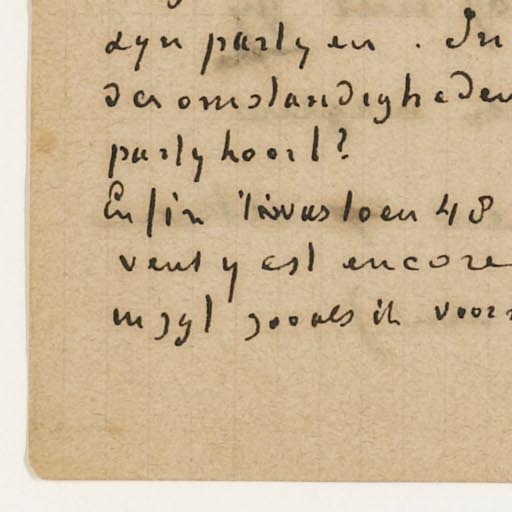 zyn partyen. In
der omstandigheden
party hoort?
Enfin 't was toen 48
vent y est encore
mzyl zooals ik voors